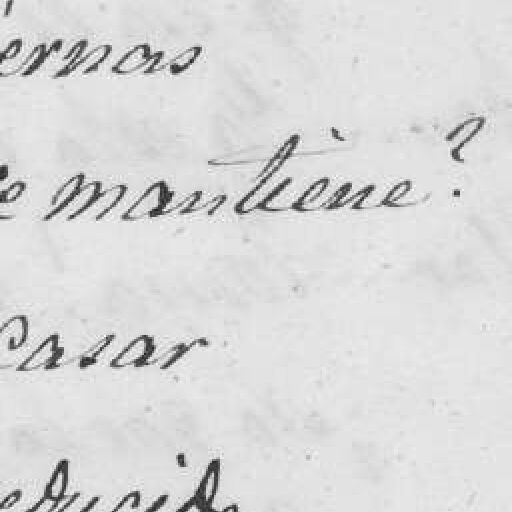 ernas
e mantiene?
Casar
educido